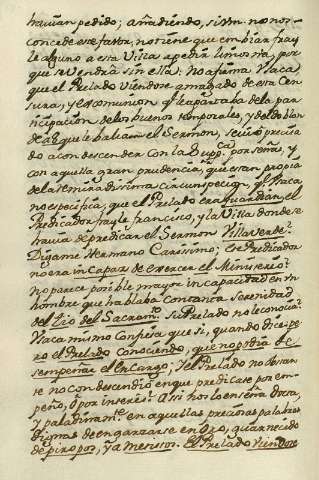 havian pedido; añadiendo, si Vm. no nos
concede este favor, no tiene que embiar fray
le alguno a esta Villa a pedir limosna, por
que se vendrà sin ella: No afirma Vaca
que el Prelado viendose amagado de esta Cen
sura, y excomunion q.e le apartaba de la par
ticipacion de los buenos temporales, y del doblon
de à 8 que le balia el Sermon, se viò precisa
do a condescender con la Supp.ca por señas, y
con aquella gran prudencia, que es tan propia
de la remiradissima circunspeccion, q.e Vaca
no especifica, que el Prelado era Guardian, el
Predicador fray le francisco, y la Villa donde se
havia de predicar el Sermon Villaverde?
Digame Hermano Carissimo; ese Predicador
no era incapaz de exercer el Ministerio?
no parece posible mayor incapacidad en un
hombre que hablaba con tanta serenidad
del tio del Sacram.to si el Prelado no le conocia?
Vaca mismo confiesa que si, quando dice; pe
ro el Prelado conociendo, que no podia de
sempeñar el encargo, y el Prelado no obstan
te no condescendiò en que predicase por em
peño, ò por interes? Asi nos lo enseña docta,
y paladinam.te en aquellas preciosas palabras
dignas de engarzarse en oro, guarnecido
de piropos, ya me risos. El Prelado Viendose